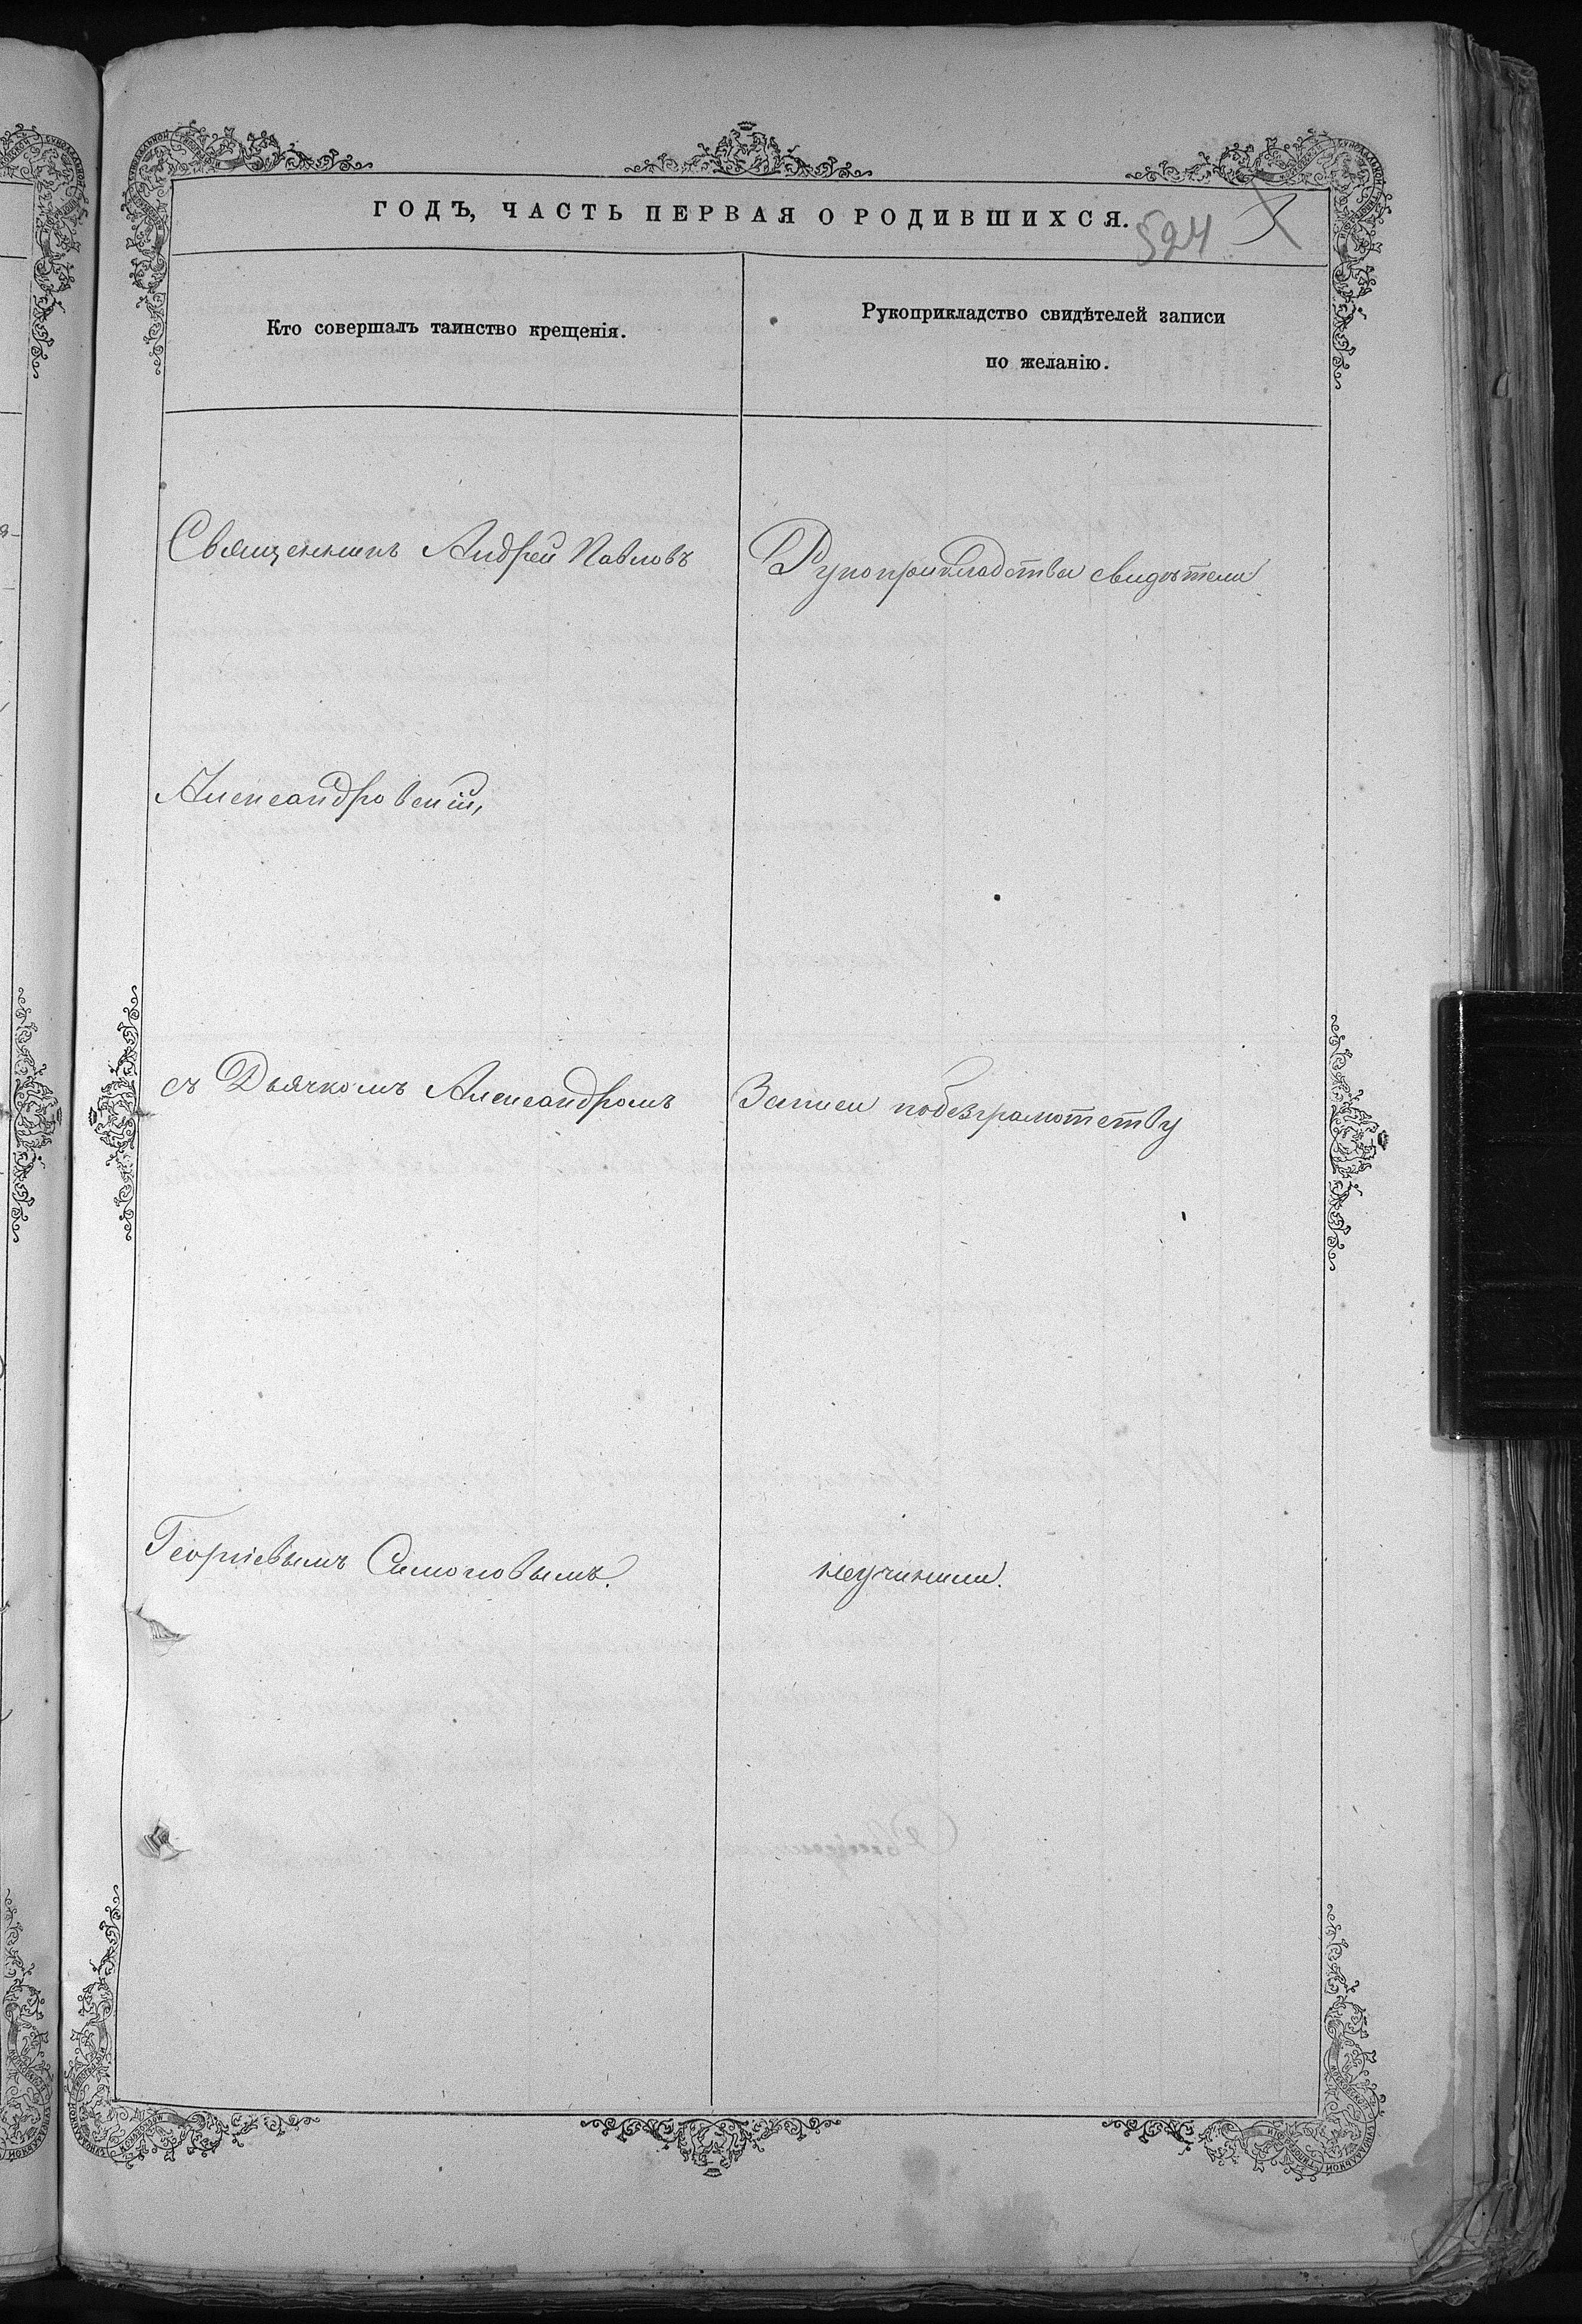 ГОДЪ, ЧАСТЬ ПЕРВАЯ О РОДИВШИХСЯ.
524
Кто совершалъ таинство крещенія.
Рукоприкладство свидѣтелей записи
по желанію.
Священникъ Андрей Павловъ
Рукоприкладства свидѣтели
Александровскій,
съ Дьячкомъ Александромъ
Записи побезграмотству
Георгіевымъ Симоновымъ.
неучинили.